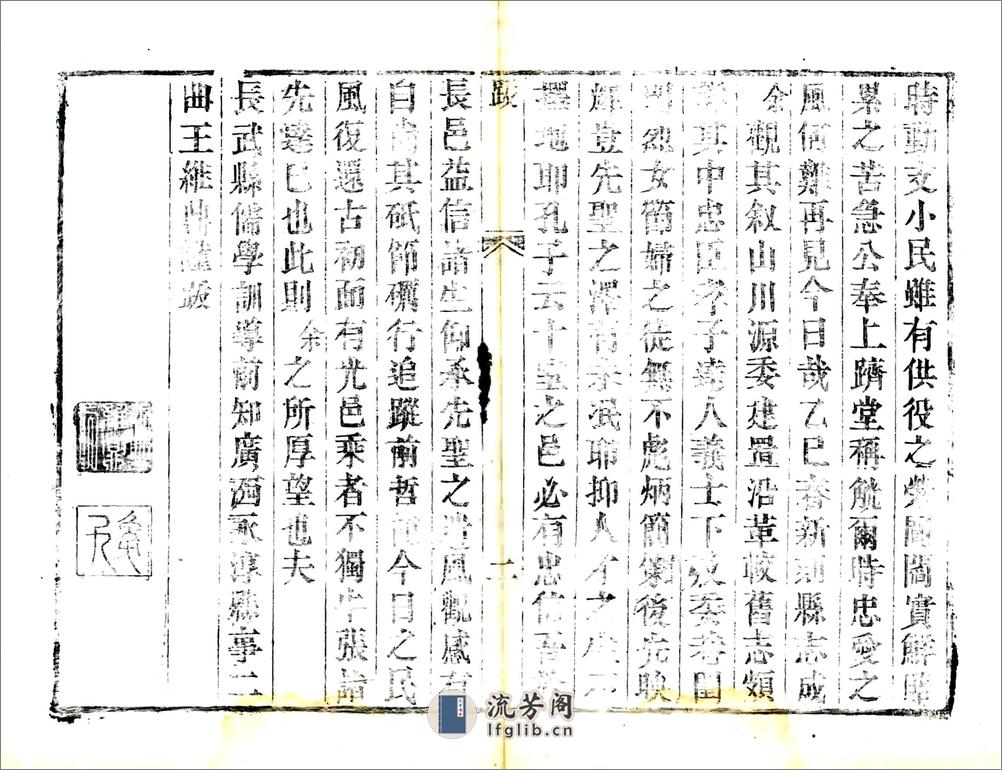 時動支小民雖有供役之勞閭閻實鮮賠
累之苦急公奉上躋堂稱觥爾時忠愛之
風何難再見今日哉乙巳春新刻縣志成
余觀其叙山川源委建置沿革較舊志頗
其中忠臣孝子達人義士下及委巷田
間烈女節婦之徒無不彪炳簡策後先映
輝豈先聖之澤有未泯耶抑人才之生不
擇地耶孔子云十室之邑必有忠信吾
跋
二
長邑益信諸生仰承先聖之遺風觀感有
自尚其砥節礪行追蹤前哲而今日之民
風復還古初面有光邑乘者不獨牛張諸
先達已也此則余之所厚望也夫
長武縣儒學訓導前知廣西永淳縣事二
曲王維 跋
流芳阁
lfglib.cn